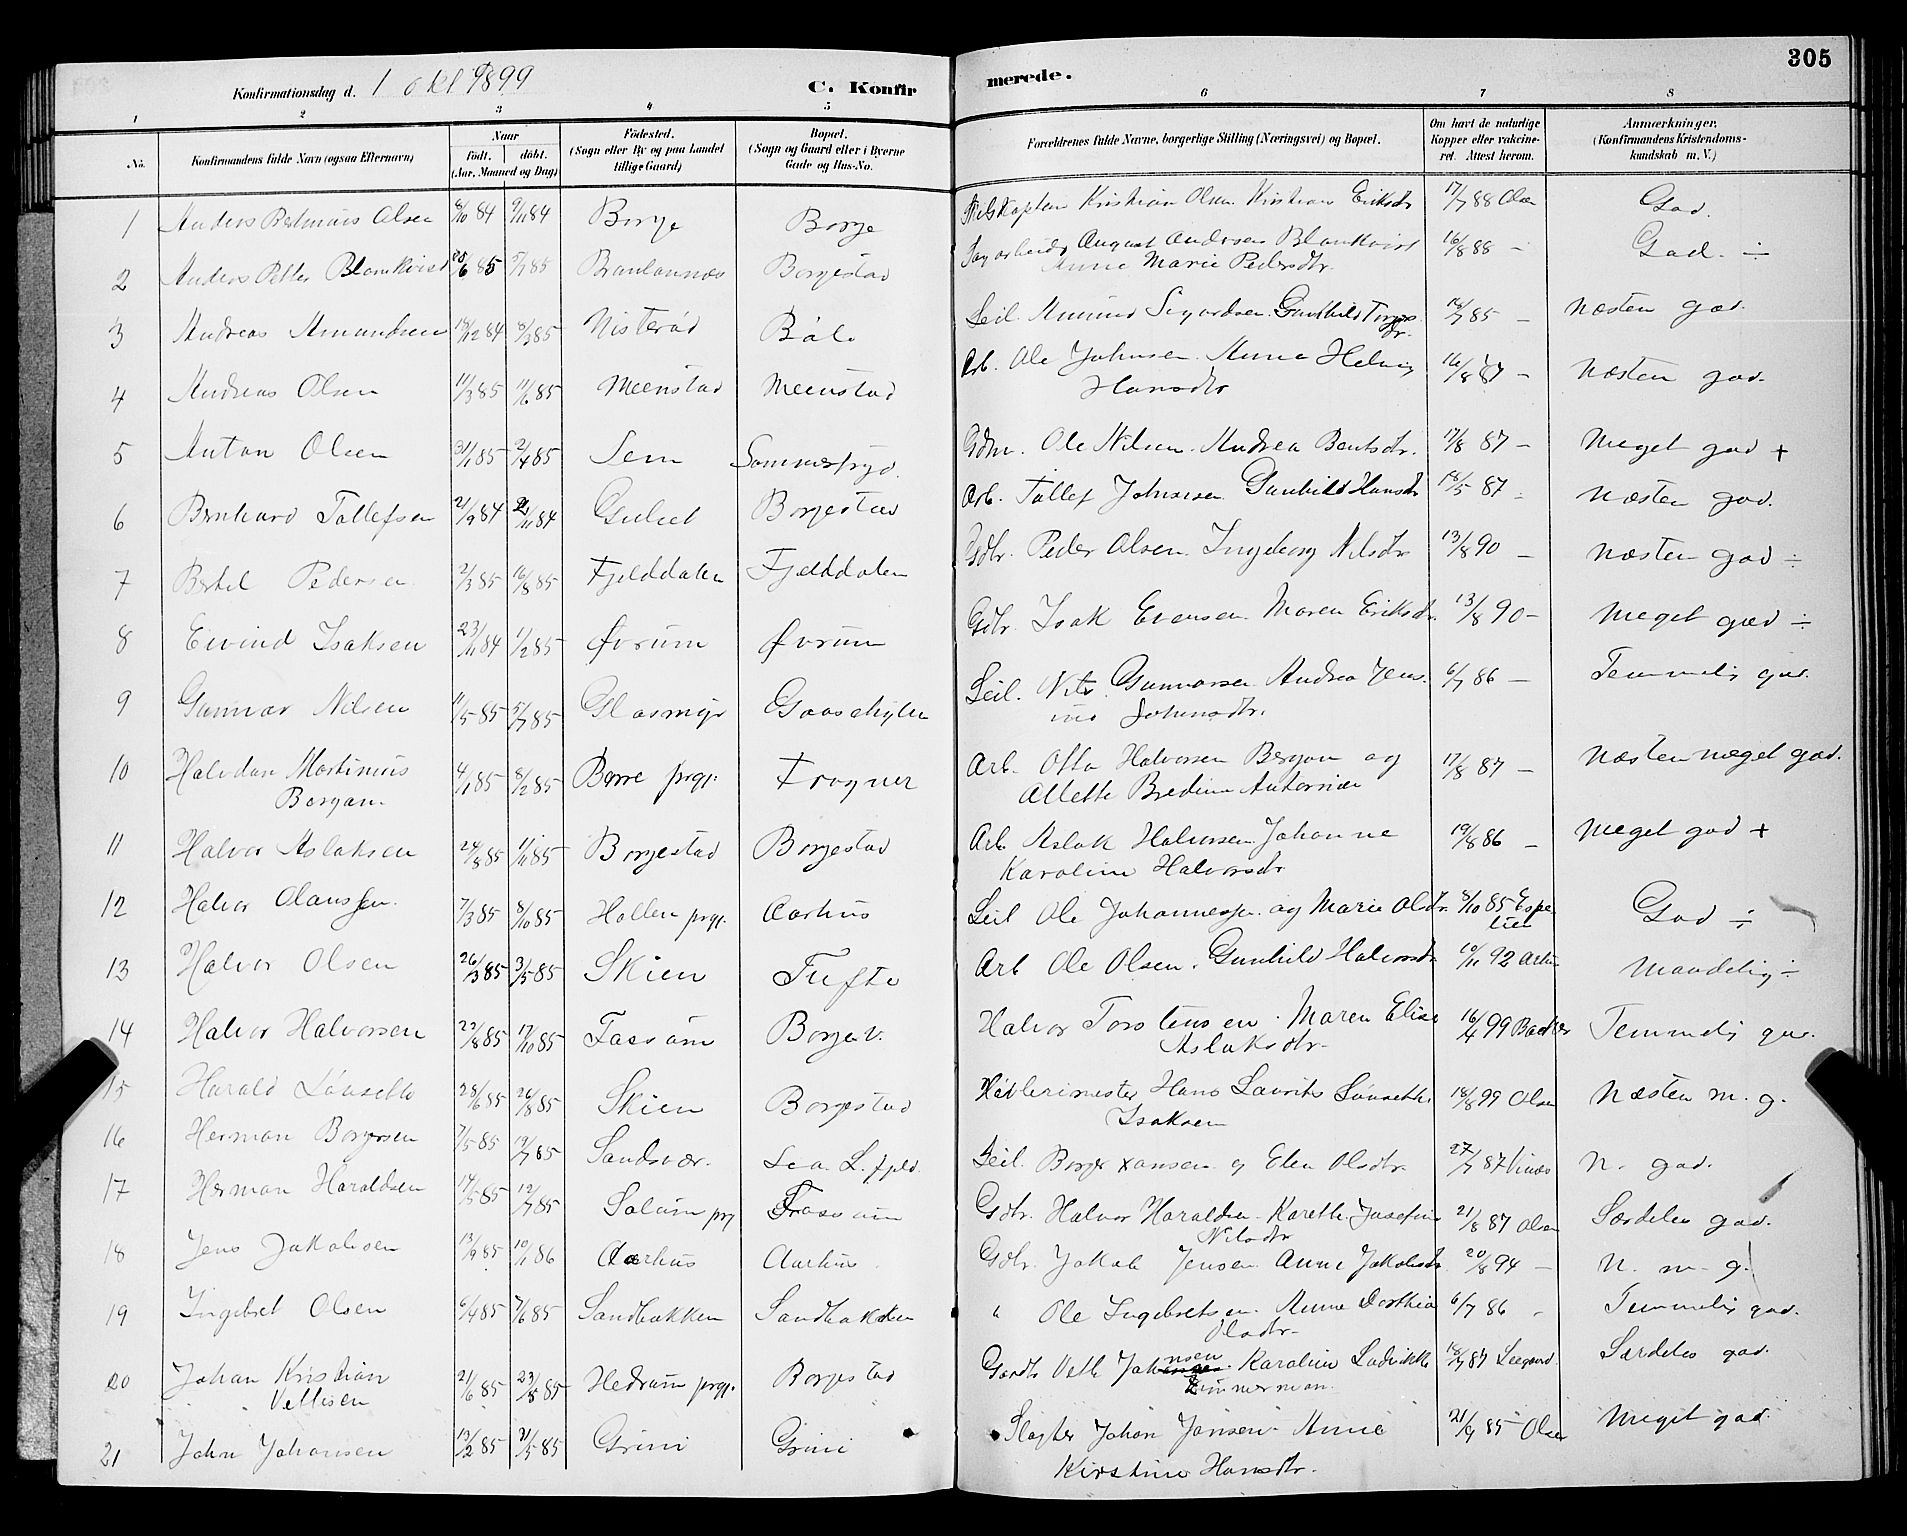 305
Konfirmationsdag d. 1 okt 1899
C. Konfirmerede.
1 2 3 4 5 6 7 8
No. Konfirmandens fulde Navn (ogsaa Efternavn) Naar født. døbt. (Aar, Maaned og Dag) Fødested. (Sogn eller By og paa Landet tillige Gaard) Bopæl. (Sogn og Gaard eller i Byerne Gade og Hus-No. Forældrenes fulde Navne, borgerlige Stilling (Næringsvei) og Bopæl. Om havt de naturlige Kopper eller vakcineret. Attest herom. Anmærkninger. (Konfirmandens Kristendomskundskab m. V.)
1 Anders Olsen 8/10 84 9/11 84 Borge Borge Kristian Olsen Eriksdr 17/7 88 Olsen God.
2 Anders Petter Blomkvist 85 85 Borgestad August Andersen Blomkvist 16/8 88 - God. ÷
Anne Marie Pedersdtr.
3 Andreas Amundsen 12 84 8/3 85 Nisterød Bøle Seil. Amund Sigurdsen. Gunhild 85 - Næsten god.
4 Andreas Olsen 11/3 85 11/6 85 Meenstad Meenstad Arb. Ole Johnsen. Anna 16/8 87 - Næsten god.
Hansdtr
5 Anton Olsen 31/1 85 2/4 85 Sem Sommerfryd. Gdm. Ole Nilsen. Andrea Bentsdtr. 17/8 87 - Meget god +
6 Bernhard Tollefsen 21/9 84 84 Gulset Borgestad Arb. Tollef Johnsen Gunhild Hansdr 18/5 87 - Næsten god.
7 Bertel Pedersen 2/3 85 16/8 85 Fjelddalen Fjelddalen Gdbr. Peder Olsen. Ingeborg Nilsdtr 13/8 90 - Næsten god ÷
8 Eivind Isaksen 23/11 84 1/2 85 Øvrum Øvrum Gdbr. Isak Evensen Maren Eriksdtr. 13/8 90 - Meget god ÷
9 Gunnar Nilsen 11/5 85 5/7 85 Glasmyr Gaasehylen Seil. Nils Gunnarsen Andrea 6/7 86 - Temmelig god.
Johnsdtr.
10 Halvdan Martinius 4/1 85 8/2 85 Borre prgj. Frogner Arb. Otto Halvorsen Borgan og 17/8 87 - Næsten meget god.
Borgan Allette
11 Halvor Aslaksen 24/8 85 1/11 85 Borgestad Borgestad Arb. Aslak Halvorsen Johanne 19/8 86 - Meget god +
Karoline Halvorsdr
12 Halvor Olaussen. 7/3 85 8/10 85 Hollen prgj. Aarhus Seil Ole Johannessen og Marie Olsdr. 8/10 85 God ÷
13 Halvor Olsen 26/3 85 3/5 85 Skien Tufte Arb Ole Olsen. Gunhild Halvorsdr 10/11 92 Maadelig ÷
14 Halvor Halvorsen 29/8 85 17/10 85 Fossum Borge v. Halvor Torstensen. Maren Elise 16/4 99 Temmelig god.
Aslaksdtr.
15 Harald Lønsetto 28/6 85 26/8 85 Skien Borgestad Høvlerimester Hans Lauritz 18/8 99 Olsen Næsten m. g.
Isaksen
16 Herman Borgersen 7/5 85 19/7 85 Sandsvær. Seil. Borger Hansen og Elen Olsdtr. 27/7 87 N. god.
17 Herman Haraldsen 14/5 85 12/7 85 Solum prg Fossum Gdbr. Halvor Haraldsen. Karethe Josefine 21/8 87 Olsen Særdeles god.
Nilsdtr
18 Jens Jakobsen 13/9 85 10/1 86 Aarhus Aarhus. Gdbr. Jakob Jensen Anne Jakobsdr 20/8 94 - N. m. g.
19 Ingebret Olsen 6/4 85 7/6 85 Sandbakken Sandbakken " Ole Ingebretsen. Anne Dorthea 6/7 86 Temmelig god.
Olsdtr.
20 Johan Kristian 21/6 85 23/8 85 Hedrum prgj. Borgestad Johansen. Karoline 87 Særdeles god.
Vettisen Zimmerman.
21 John Johansen 13/2 85 31/5 85 Grini Grini Slagter Johan Jansen Anne 21/9 85 Olsen Meget god.
Kirstine Hansdtr.